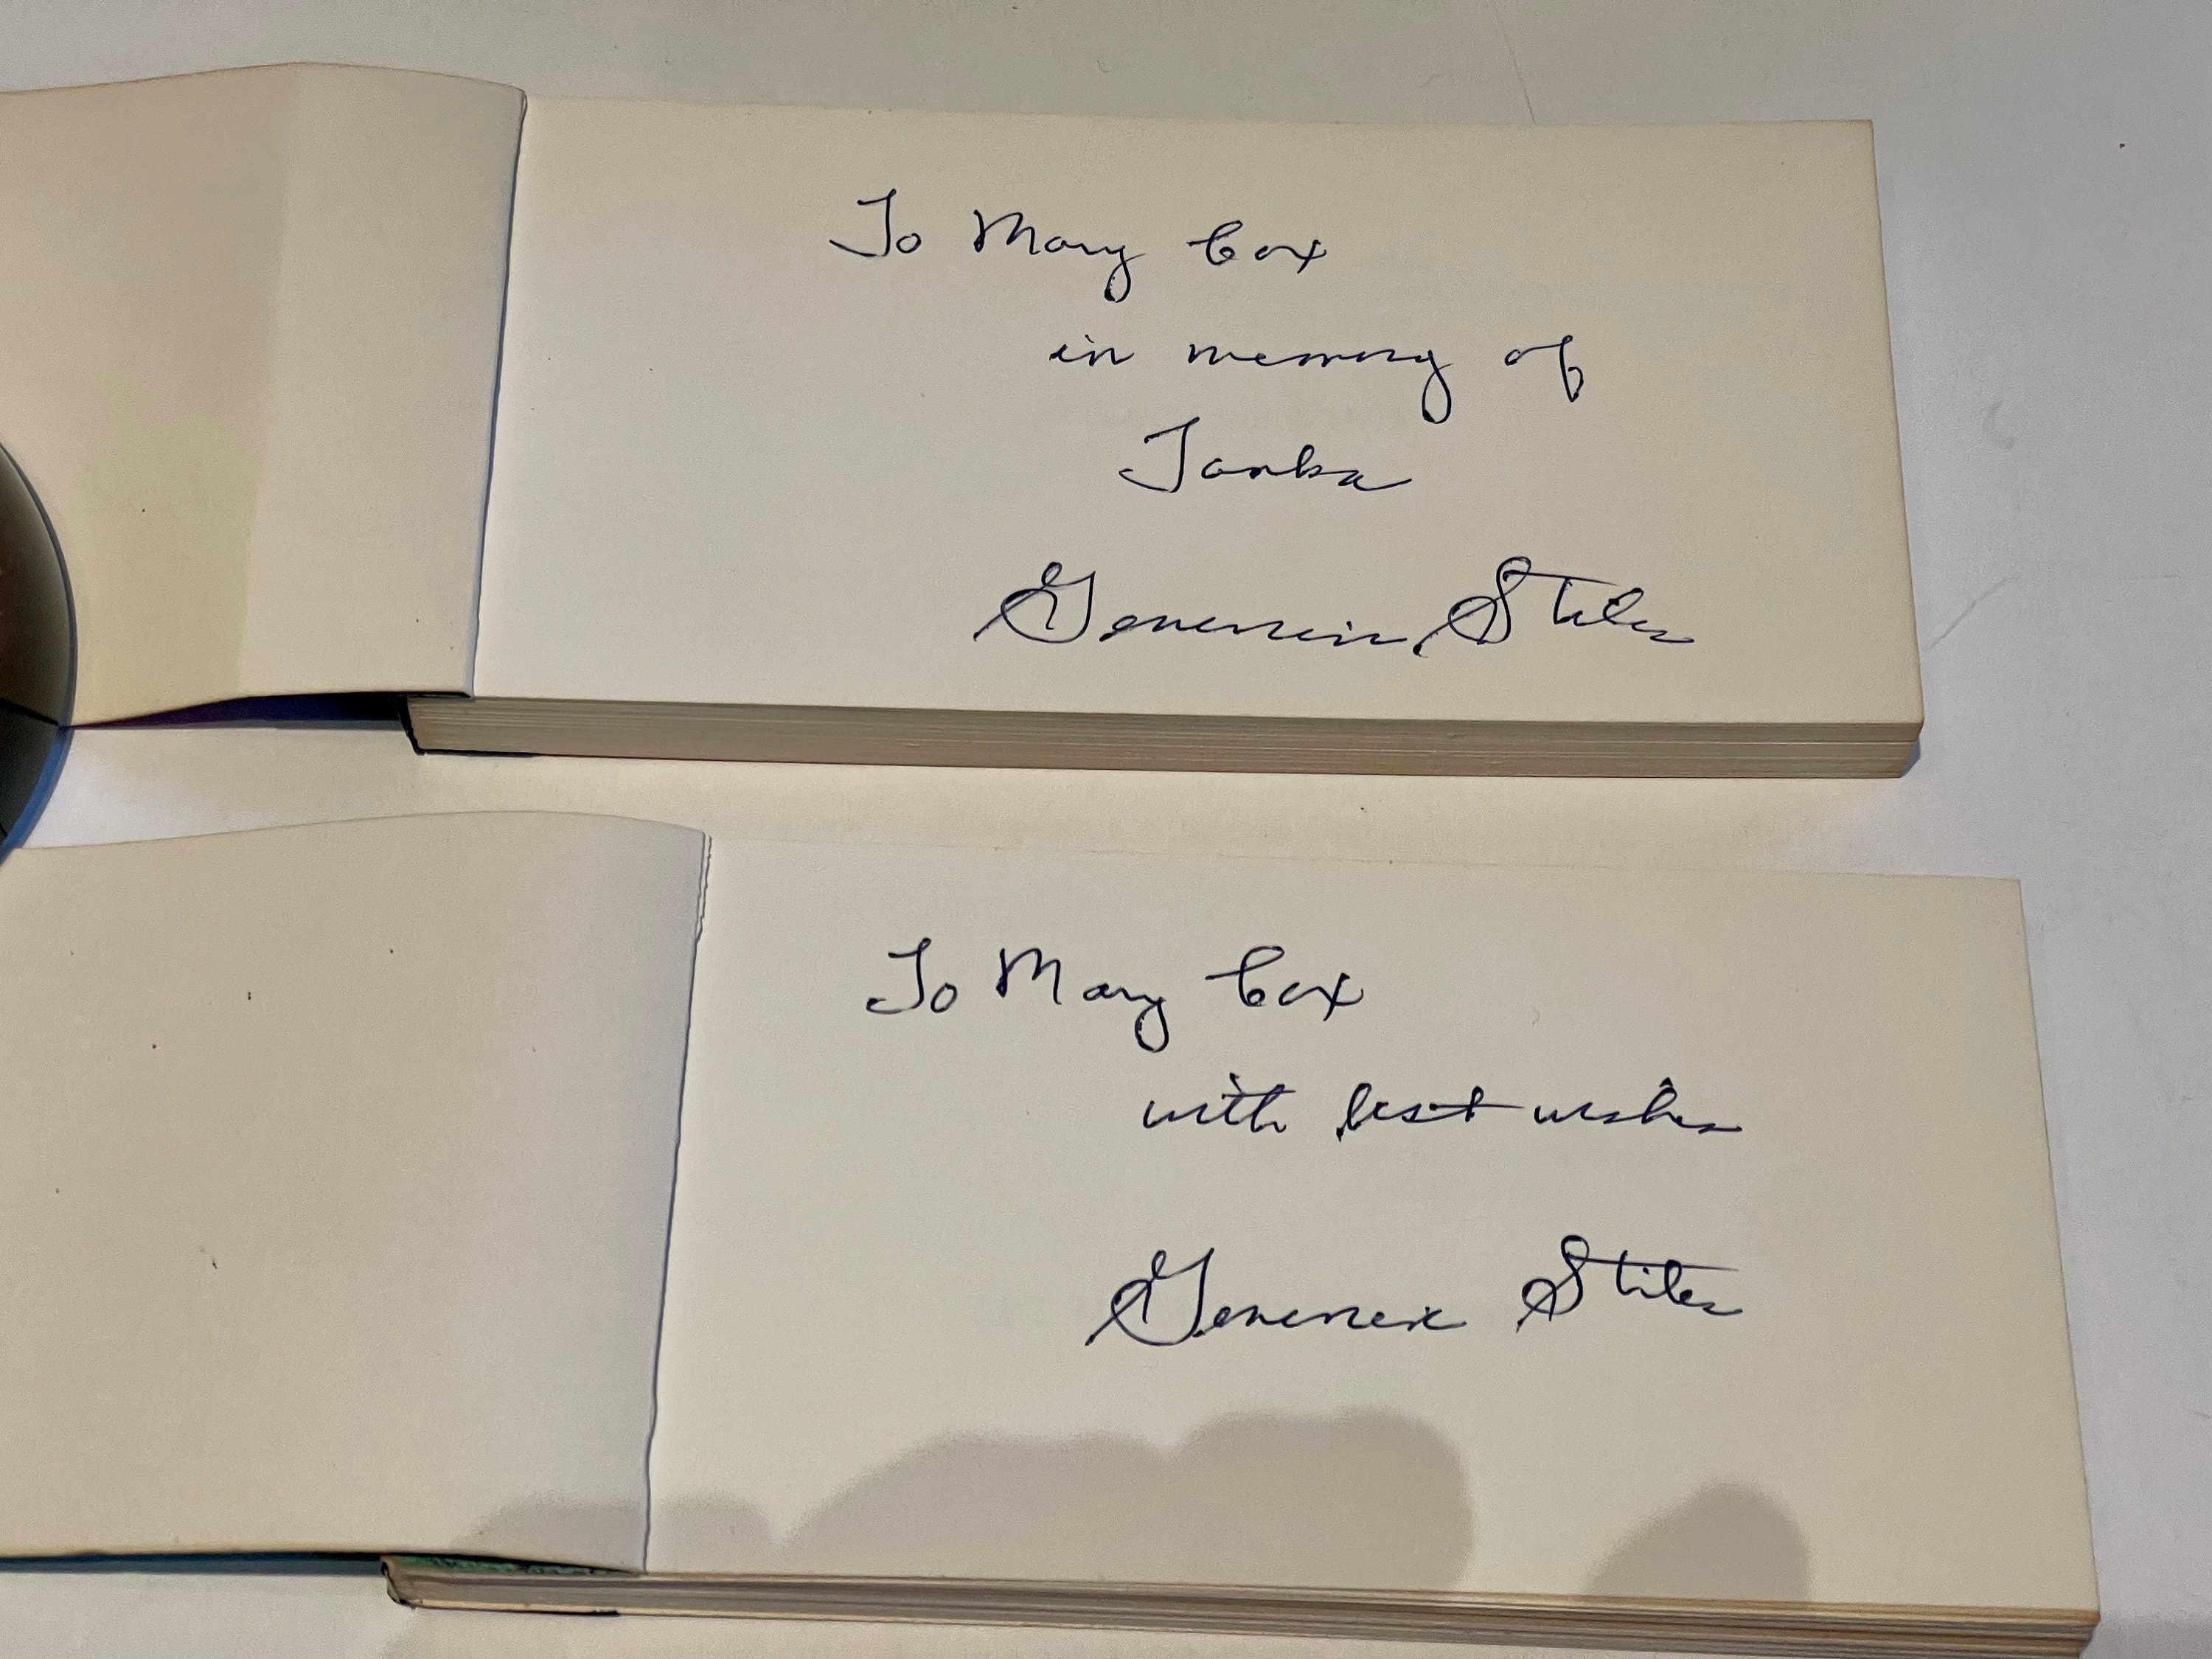 To Mary Cox
in memory of
Tonka
Genevieve Stiles
To Mary Cox
with best wishes
Genevieve Stiles